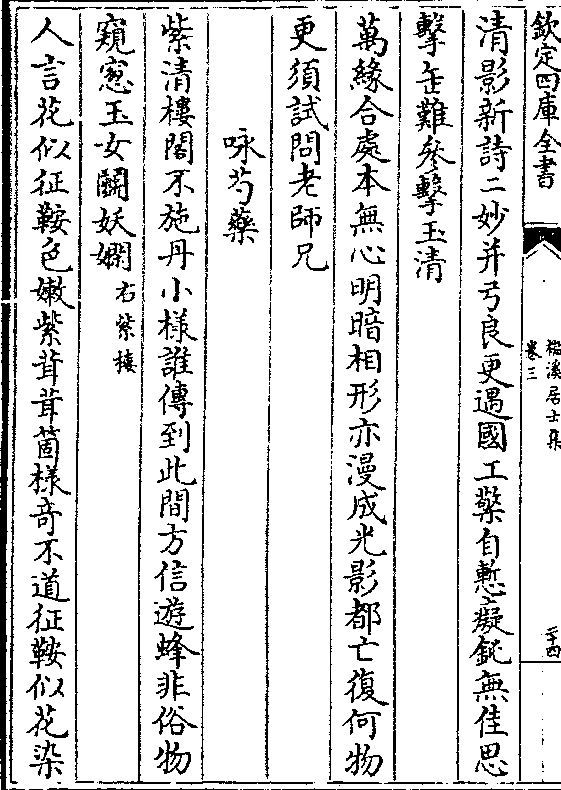 欽定四庫全書
檆溪居士集
卷三
二十四
清影新詩二妙并弓良更遇國工檠自慙癡鈍無佳思
擊缶難參擊玉清
萬緣合處本無心明暗相形亦漫成光影都亡復何物
更須試問老師兄
咏芍藥
紫清樓閣不施丹小樣誰傳到此間方信遊蜂非俗物
窺窓玉女鬬妖嫻右紫樓
人言花似征鞍色嫩紫茸茸箇樣奇不道征鞍似花染